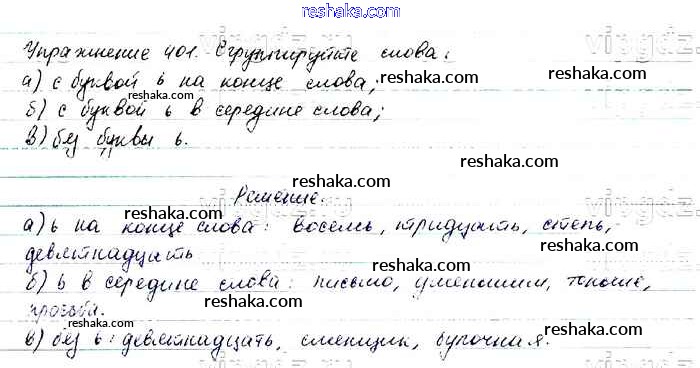 reshaka.com
Упражнение 401. Сгруппируйте слова:
а) с буквой ь на конце слова;
reshaka.com
б) с буквой ь в середине слова;
reshaka.com
в) без буквы ь.
reshaka.com
reshaka.com
Решение.
vingdz
а) ь на конце слова: восемь, тридцать, степь,
reshaka.com
девятнадцать
reshaka.com
б) ь в середине слова: письмо, уменьшим, тоньше,
просьба.
reshaka.com
в) без ь: девятнадцать, сменщик, булочная.
reshaka.com
reshaka.com